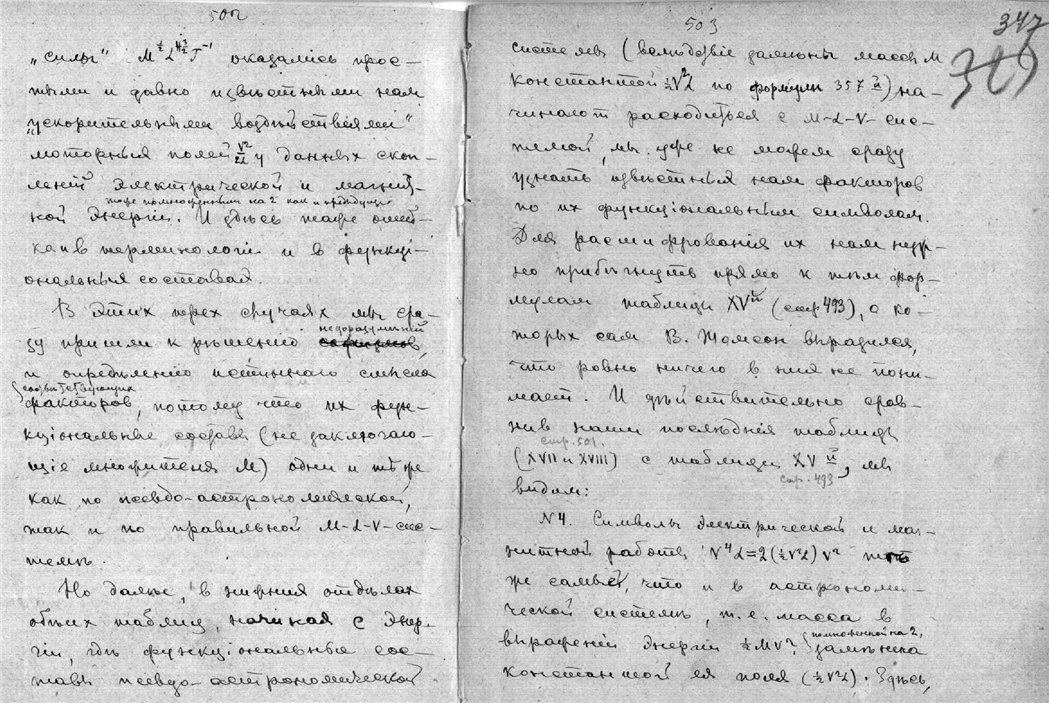 502
„силы" M½L 3/2 T⁻¹ оказались прос-
тыми и давно извѣстными нам
„ускорительными воздѣйствіями"
моторныя полей V²/2L у данных скоп-
леній электрической и магнит-
тоже помноженными на 2 как и предыдущія
ной энергіи. И здѣсь тоже ошиб-
ка и в терминологіи и в функці-
ональныя составах.
В этих трех случаях мы сра-
недоразумѣній
зу пришли к рѣшенію
и опредѣленію истиннаго смысла
соотвѣтствующих
факторов, потому что их функ-
кціональные составы (не заключаю-
щіе множителя M) одни и тѣ же
как по псевдо-астрономической,
так и по правильной M-L-V-сис-
темѣ.
Но далѣе, в нижния отдѣлах
обѣих таблиц, начиная с энер-
гіи, гдѣ функціональные сос-
тавы псевдо-астрономической
503
347
системы (вслѣдствіе замѣны массы M
константой ½V²L по формулѣ 357 ) на-
чинают расходиться с M-L-V-сис-
темой, мы уже не можем сразу
узнать извѣстныя нам факторов
по их функціональным символам.
Для расшифрованія их нам нуж-
но прибѣгнуть прямо к тѣм фор-
мулам таблицы XV (стр 493), о ко-
торых сам В. Томсон выразился,
что ровно ничего в ния не пони-
мает. И дѣйствительно срав-
нив наши послѣднія таблицы
стр. 501.
(XVII и XVIII) с таблицей XV, мы
стр. 493
видим:
N4. Символы электрической и маг-
нитной работы V⁴L=2(½V²L)V² тѣ
же самые, что и в астрономи-
ческой системѣ, т.е. масса в
выраженіи энергіи ½MV²,
помноженной на 2,
замѣнена
константой ея поля (½V²L). Здѣсь,